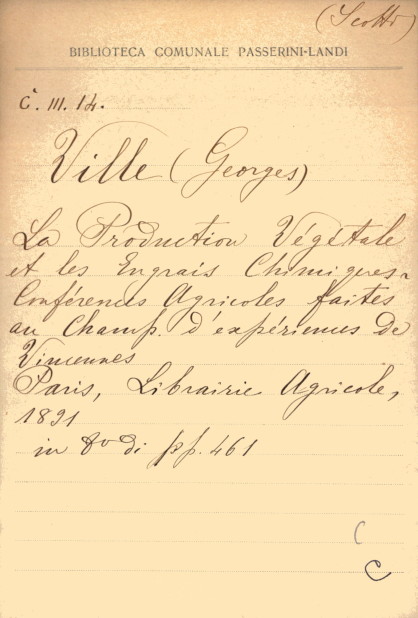 (Scotti)
BIBLIOTECA COMUNALE PASSERINI-LANDI
C. III. 14.
Ville (Georges)
La Production Végétale
et les Engrais Chimiques
Conférences Agricoles faites
au Champ. d'expériences de
Vincennes
Paris, Librairie Agricole,
1891
in 8o di pp. 461
C
C